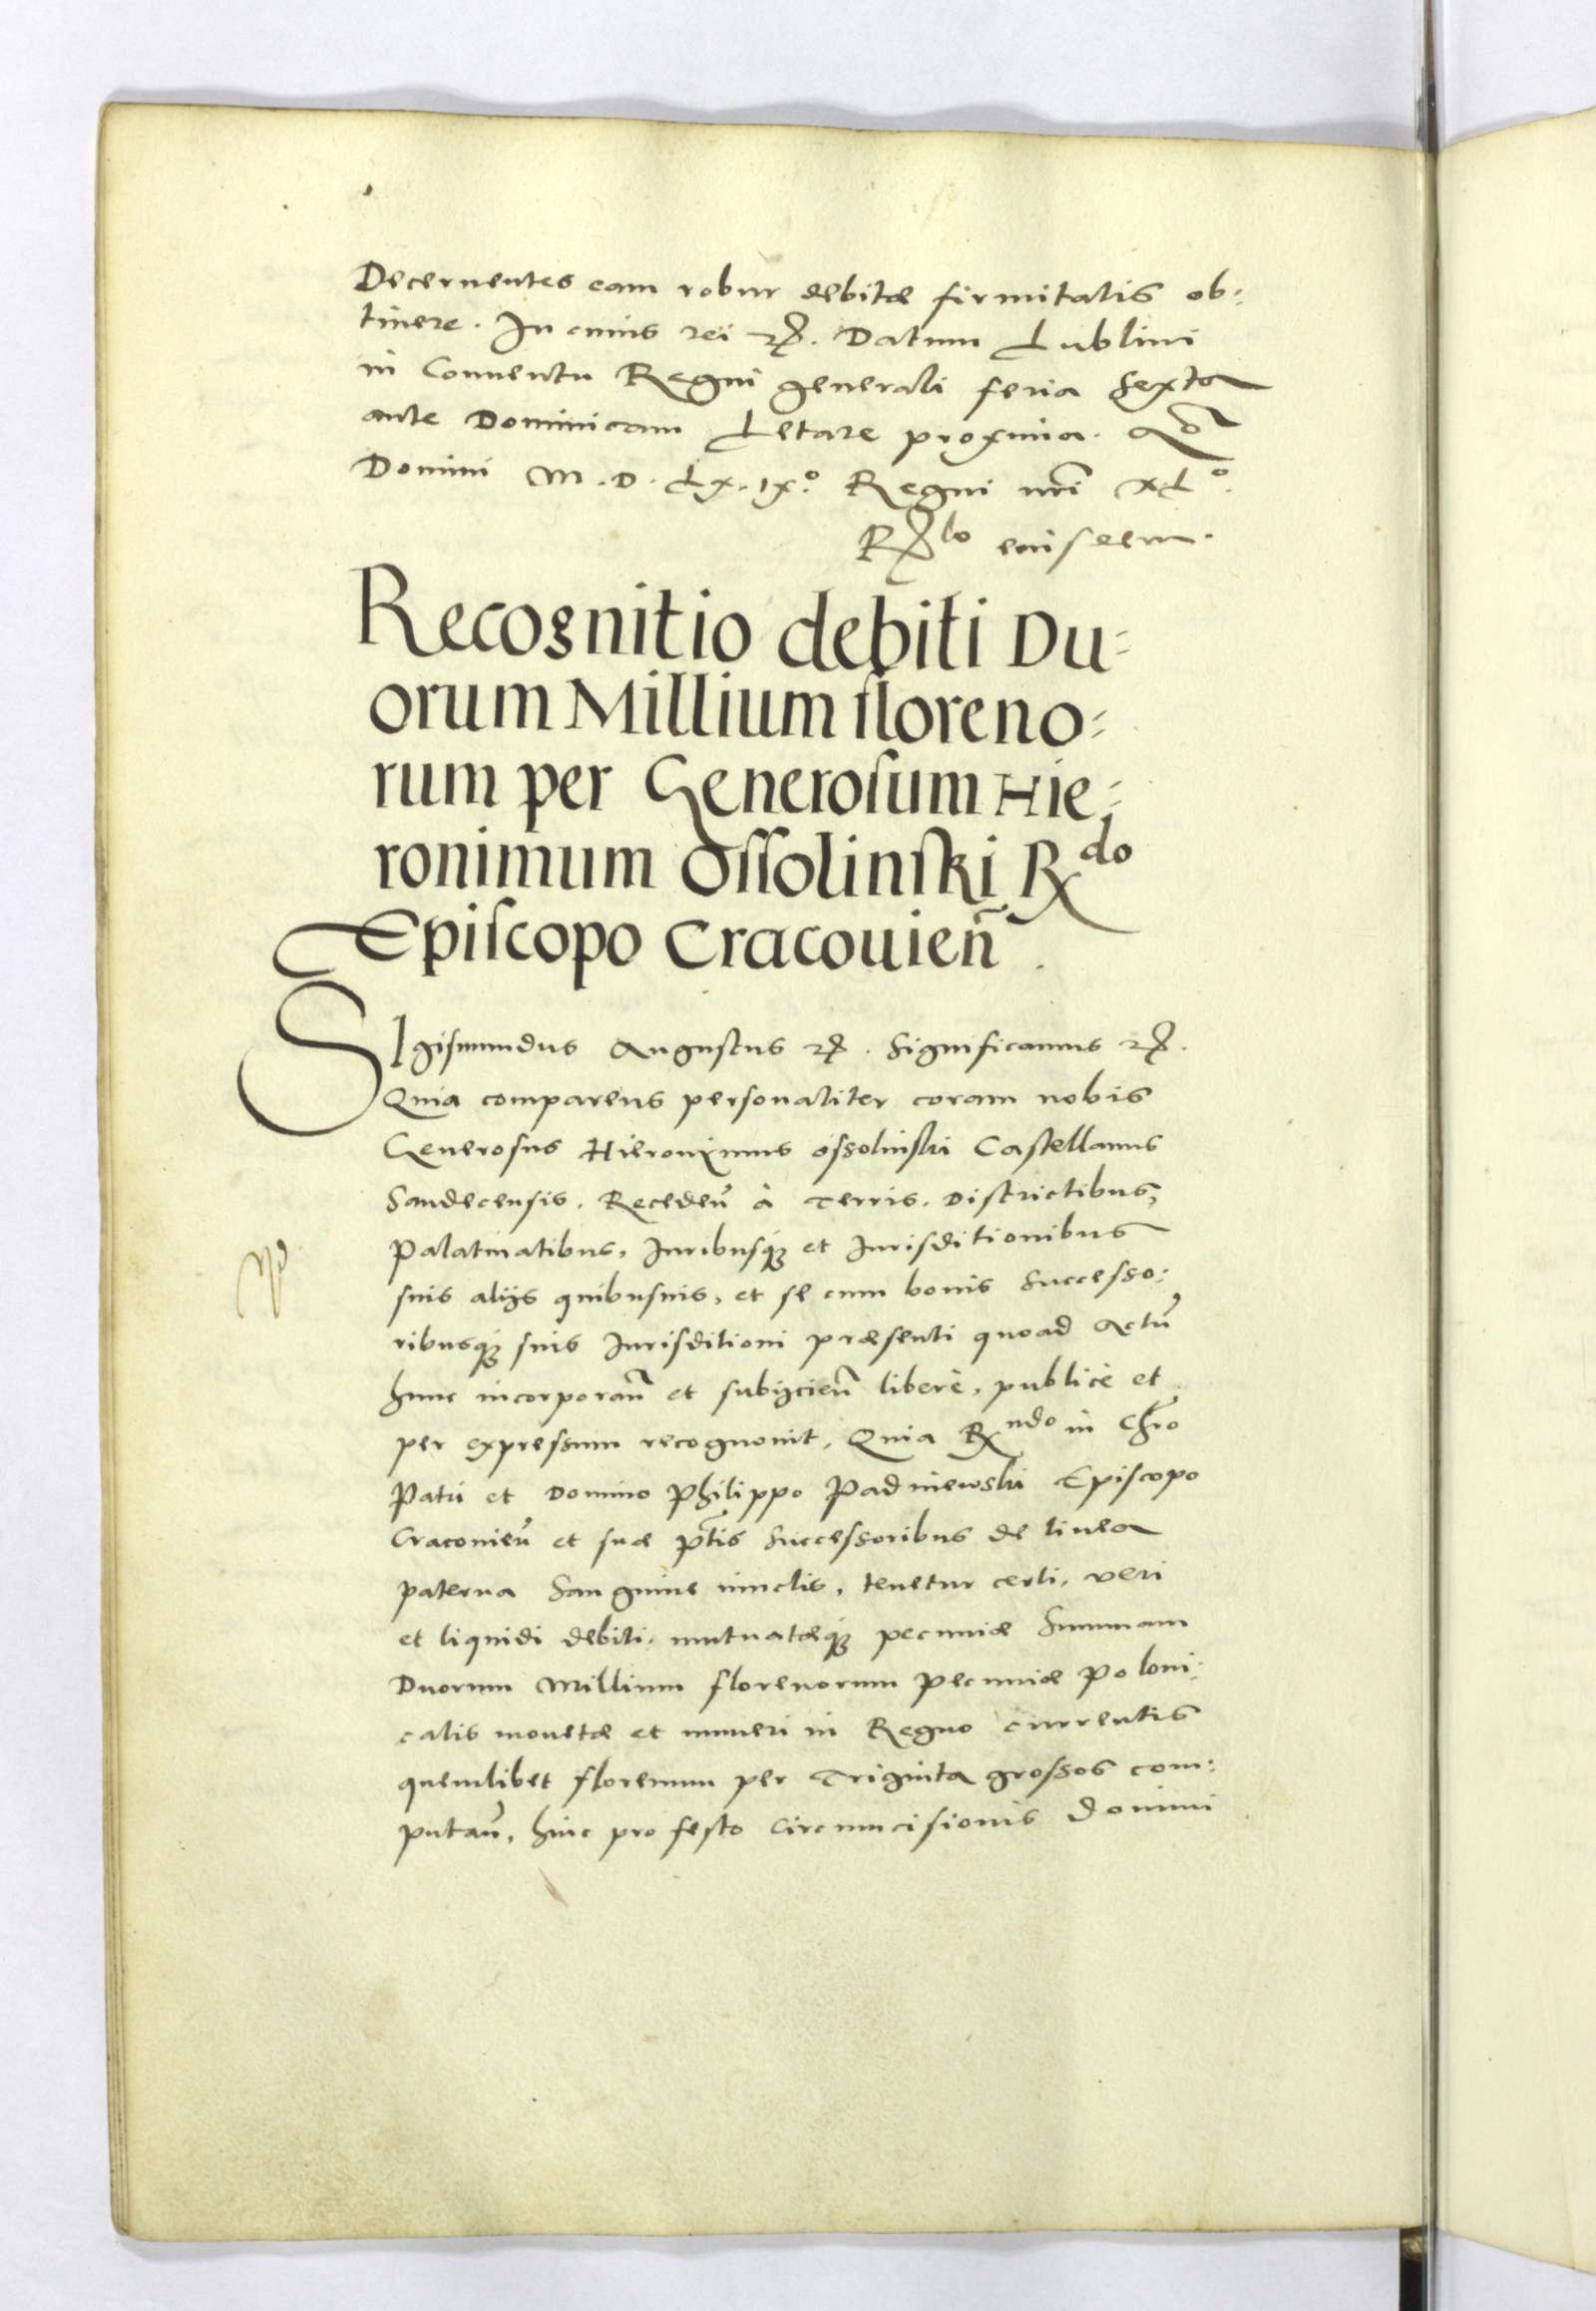 Decernentes eam robur debitæ firmitatis ob:
tinere. In cuius rei &c. Datum Lublini
in Conuentu Regni generali feria Sexta
ante Dominicam Letare proxima. Ao
Domini M.D.Lx.ix.º Regni nr̃i xLº.
R lo eiusdem.
Recognitio debiti Du=
orum Millium floreno=
rum per Generosum Hie=
ronimum Ossolinski R do
Episcopo Cracouien̄.
SIgismundus Augustus &c. Significamus &c.
Quia comparens personaliter coram nobis
Generosus Hieronimus Ossolinski Castellanus
Sandecensis. Receden̄ à Terris. Districtibus,
Palatinatibus, Iuribusq; et Iurisditionibus
suis alijs quibusuis, et se cum bonis Successo:
ribusq; suis Iurisditioni præsenti quoad Actū
hunc incorporan̄ et subijcien̄ liberè, publicè et
per expressum recognouit, Quia R ndo in Chr̃o
Patri et Domino Philippo Padniewski Episcopo
Cracouien̄ et suæ Pt̃is Successoribus de linea
paterna Sanguine iunctis, tenetur certi, veri
et liquidi debiti, mutuatæq; pecuniæ Summam
Duorum Millium florenorum pecuniæ Poloni:
calis monetæ et numeri in Regno currentis
quemlibet florenum per Triginta grossos com:
putan̄, hinc pro festo Circumcisionis Domini